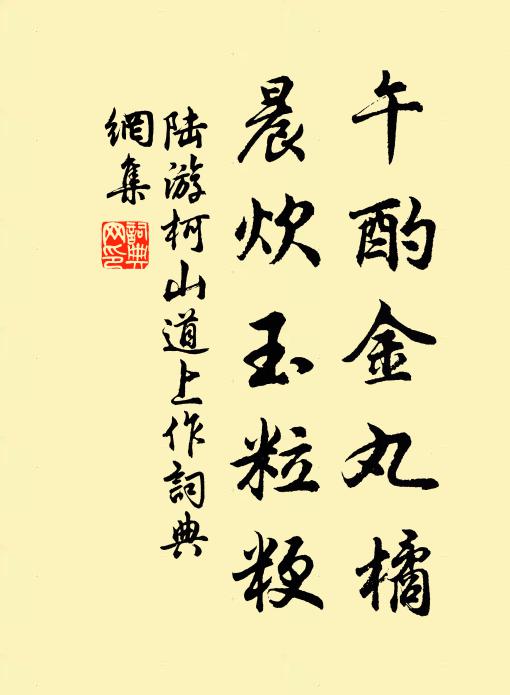 午酌金丸橘
晨炊玉粒粳
陆游柯山道上作詞典
網集
詞典
网印